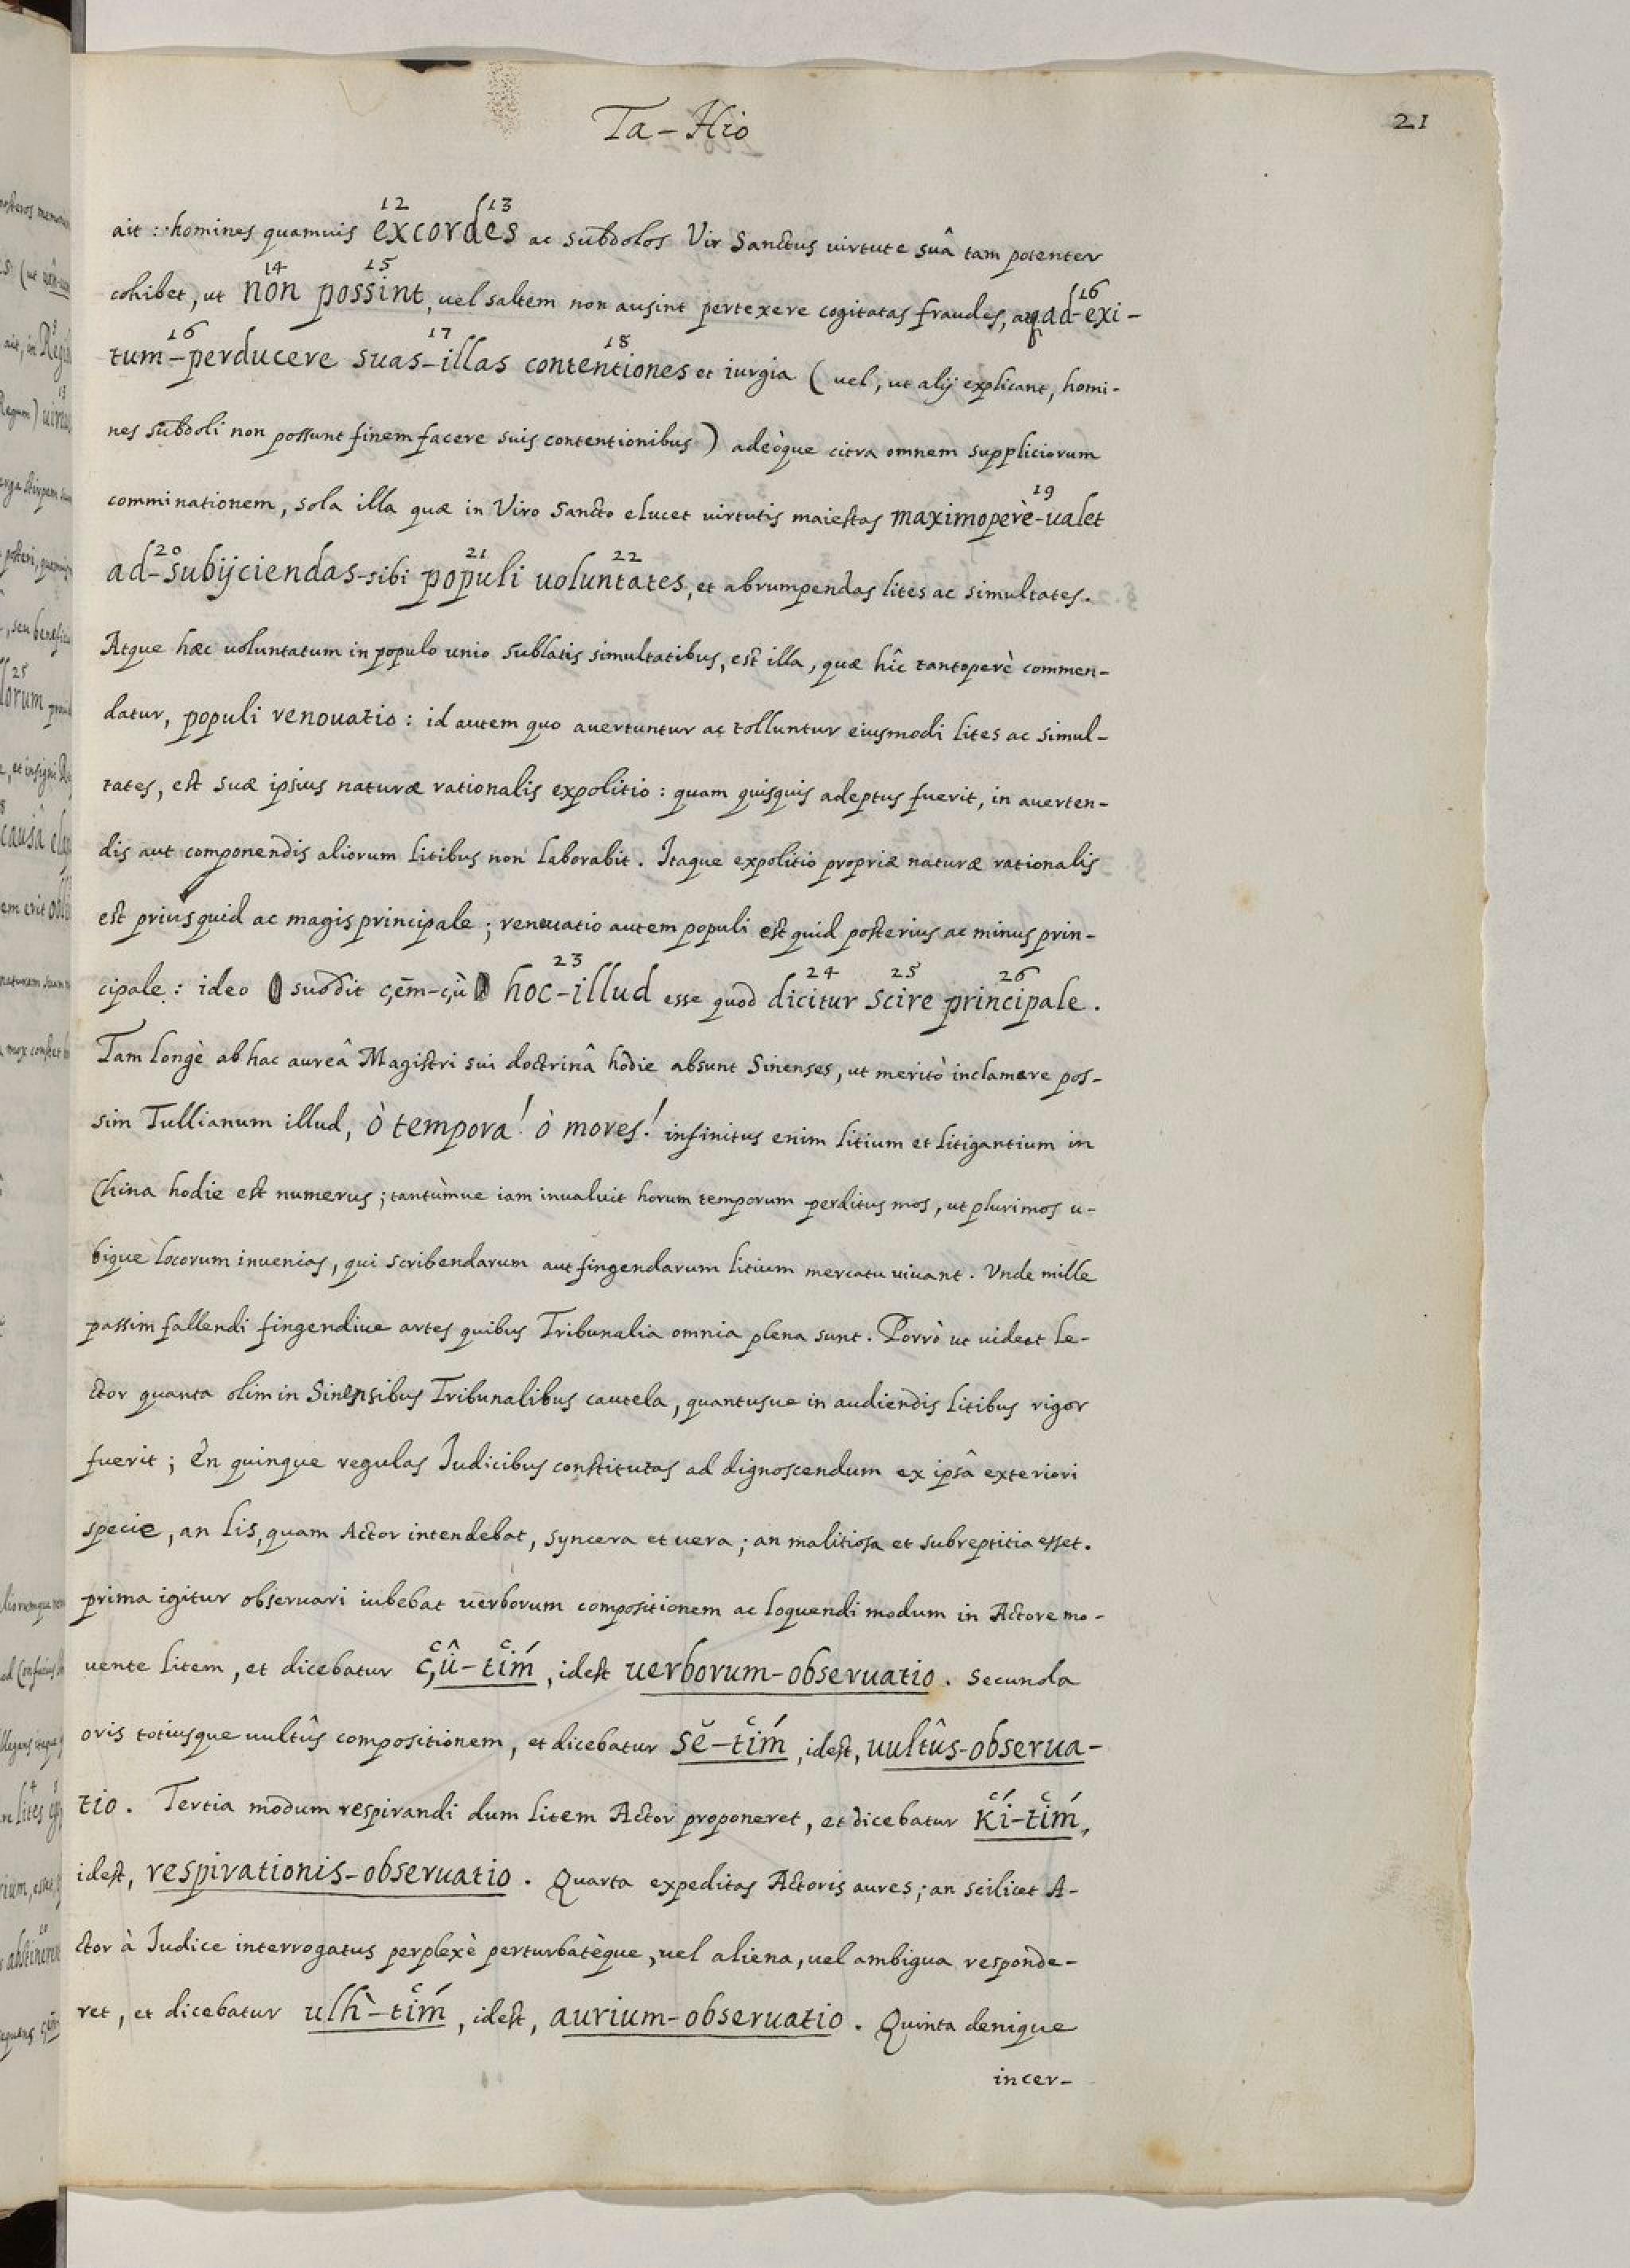 Ta-Hio
21
12 13
ait: homines quamuis excordes ac subdolos Vir Sanctus uirtute suâ tam potenter
14 15 16
cohibet, ut non possint, uel saltem non ausint pertexere cogitatas fraudes, atq ad-exi-
16 17 18
tum-perducere suas-illas contentiones et iurgia (uel, ut alij explicant, homi-
nes subdoli non possunt finem facere suis contentionibus) adeòque citra omnem suppliciorum
19
comminationem, sola illa quæ in Viro Sancto elucet uirtutis maiestas maximoperè-ualet
20 21 22
ad-subijciendas-sibi populi uoluntates, et abrumpendas lites ac simultates.
Atque hæc uoluntatum in populo unio sublatis simultatibus, est illa, quæ hîc tantoperè commen-
datur, populi renouatio: id autem quo auertuntur ac tolluntur eiusmodi lites ac simul-
tates, est suæ ipsius naturæ rationalis expolitio: quam quisquis adeptus fuerit, in auerten-
dis aut componendis aliorum litibus non laborabit. Itaque expolitio propriæ naturæ rationalis
est prius quid ac magis principale; renouatio autem populi est quid posterius ac minus prin-
23 24 25 26
cipale: ideo subdit çēm-çù hoc-illud esse quod dicitur scire principale.
Tam longè ab hac aureâ Magistri sui doctrinâ hodie absunt Sinenses, ut meritò inclamare pos-
sim Tullianum illud, ò tempora! ò mores! infinitus enim litium et litigantium in
China hodie est numerus; tantùmue iam inualuit horum temporum perditus mos, ut plurimos u-
bique locorum inuenias, qui scribendarum aut fingendarum litium mercatu uiuant. Vnde mille
passim fallendi fingendiue artes quibus Tribunalia omnia plena sunt. Porrò ut uideat le-
ctor quanta olim in Sinensibus Tribunalibus cautela, quantusue in audiendis litibus rigor
fuerit; En quinque regulas Iudicibus constitutas ad dignoscendum ex ipsâ exteriori
specie, an lis, quam Actor intendebat, syncera et uera; an malitiosa et subreptitia esset.
prima igitur obseruari iubebat uerborum compositionem ac loquendi modum in Actore mo-
uente litem, et dicebatur çû-tím, idest uerborum-obseruatio. Secunda
oris totiusque uultûs compositionem, et dicebatur sĕ-tím, idest, uultûs-obserua-
tio. Tertia modum respirandi dum litem Actor proponeret, et dicebatur Kí-tím,
idest, respirationis-obseruatio. Quarta expeditas Actoris aures; an scilicet A-
ctor à Iudice interrogatus perplexè perturbatèque, uel aliena, uel ambigua responde-
ret, et dicebatur ulh̀-tím, idest, aurium-obseruatio. Quinta denique
incer-